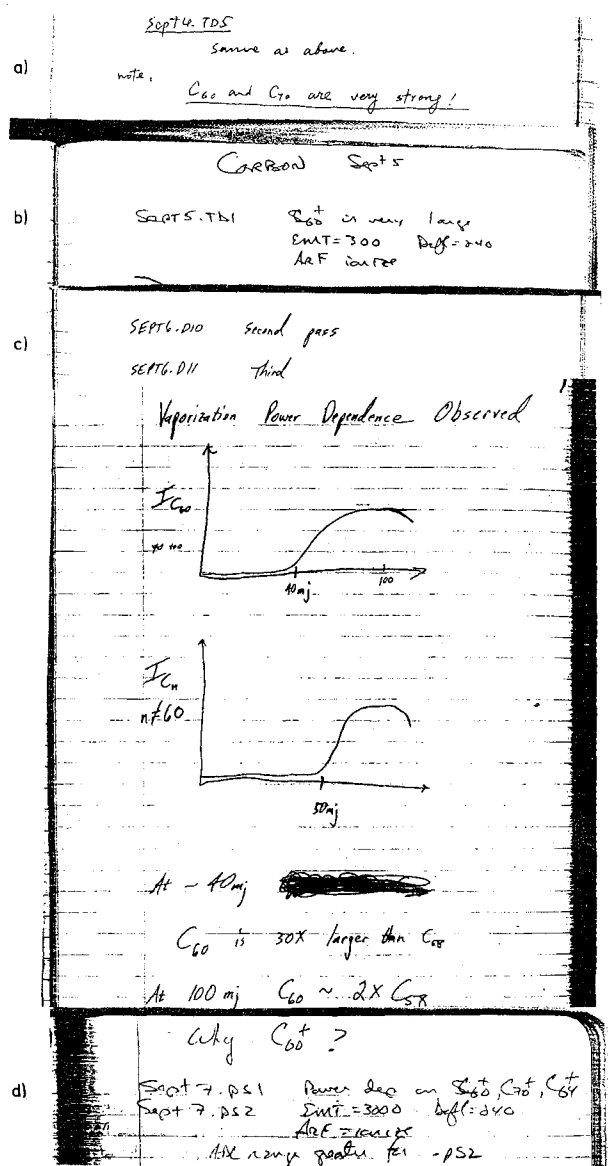 a)
Sept 4. TD5
Same as above.
note,
C60 and C70 are very strong!
CARBON Sept 5
b)
SEPT5.TD1 C60+ is very large
EMT=300 Defl=240
ArF ionize
c)
SEPT6.D10 Second pass
SEPT6.D11 Third
Vaporization Power Dependence Observed
I C60
40 mj 100
I Cn
n≠60
50 mj
At ~ 40 mj
C60 is 30X larger than C58
At 100 mj C60 ~ 2X C58
Why C60+ ?
d)
Sept 7.PS1 Power dep on C60+, C70+, C64+
Sept 7.PS2 EMT=3000 Defl=240
ArF = ionize
range greater for .PS2